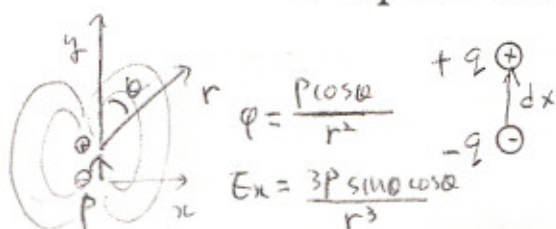 y
θ
r
⊕
⊖
P
x
φ = Pcosθ / r²
Ex = 3P sinθ cosθ / r³
+q ⊕
dx
-q ⊖